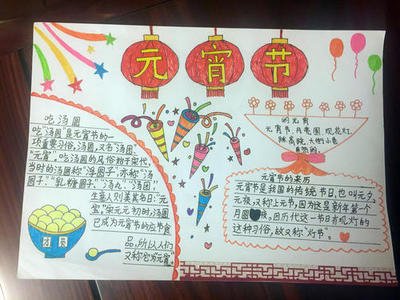 元宵节
吃汤圆
吃"汤圆"是元宵节的一
项重要习俗,汤圆,又名"汤团"
"元宵",吃汤圆的风俗始于宋代,
当时的汤圆称"浮圆子",亦称"汤
圆子"、"乳糖圆子"、"汤丸"、"汤团"、
生意人则美其名曰:"元
宝"。宋元元初时,汤圆
已成为元宵节的应节食
品,所以人们
又称它为"元宵"。
的元宵
元宵节,月亮圆,观花灯,
元宵节的来历
元宵节是我国的传统节日,也叫元夕、
元夜,又称上元节,因为这是新年第一个
月圆夜,因历代这一节日有观灯的
这种习俗,故又称"灯节"。